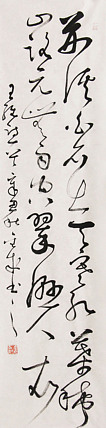 荆溪白石出天寒红葉稀
山路元無雨空翠濕人衣
王維